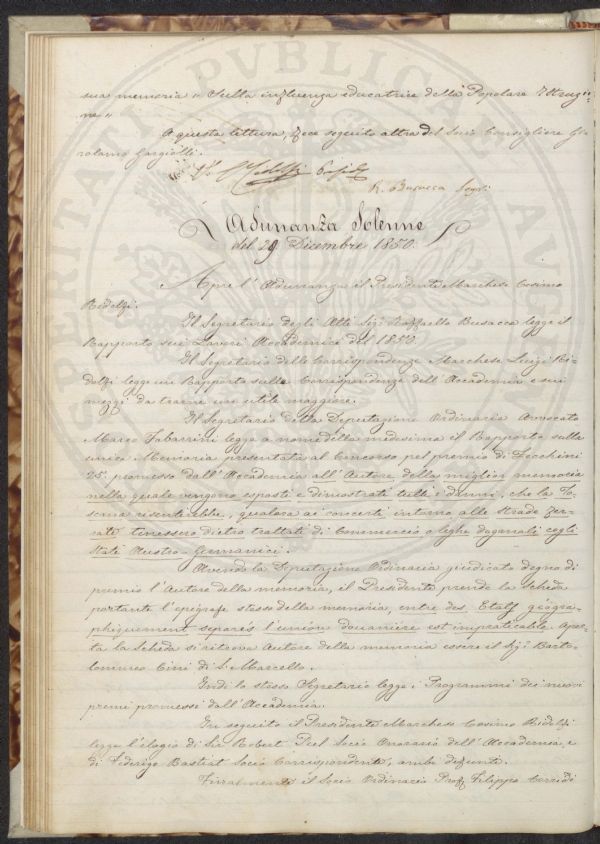 sua memoria "Sulla influenza educatrice della Popolare Istruzio=
ne"
A questa lettura, fece seguito altra del Socio Consigliere Gi=
rolamo Gargiolli.
C. Ridolfi
R. Busacca Segr.
Adunanza Solenne
del 29 Dicembre 1850.
Apre l'Adunanza il Presidente Marchese Cosimo
Ridolfi.
Il Segretario degli Atti Sig. Raffaello Busacca legge il
Rapporto sui Lavori Accademici del 1850.
Il Segretario delle Corrispondenze Marchese Luigi Ri=
dolfi legge un Rapporto sulla Corrispondenza dell'Accademia e sui
mezzi da trarne un utile maggiore.
Il Segretario della Deputazione Ordinaria Avvocato
Marco Tabarrini legge a nome della medesima il Rapporto sulla
unica Memoria presentata al Concorso pel premio di Zecchini
25. promesso dall'Accademia all'Autore della miglior memoria
nella quale vengono esposti e dimostrati tutti i danni, che la To=
scana risentirebbe, qualora ai concerti intorno alle strade fer=
rate tenessero dietro trattati di Commercio o leghe doganali cogli
Stati Austro-Germanici.
Avendo la Deputazione Ordinaria giudicato degno di
premio l'Autore della memoria, il Presidente prende la scheda
portante l'epigrafe stessa della memoria, entre des Etats géogra=
phiquement separés l'union douanière est impraticable. Aper=
ta la Scheda si ritrova Autore della memoria essere il Sig. Barto=
lommeo Cini di S. Marcello.
Indi lo stesso Segretario legge i Programmi dei nuovi
premi promessi dall'Accademia.
In seguito il Presidente Marchese Cosimo Ridolfi
legge l'elogio di Sir Robert Peel Socio Onorario dell'Accademia, e
di Federigo Bastiat Socio Corrispondente, ambi defunti.
Finalmente il Socio Ordinario Prof. Filippo Corridi